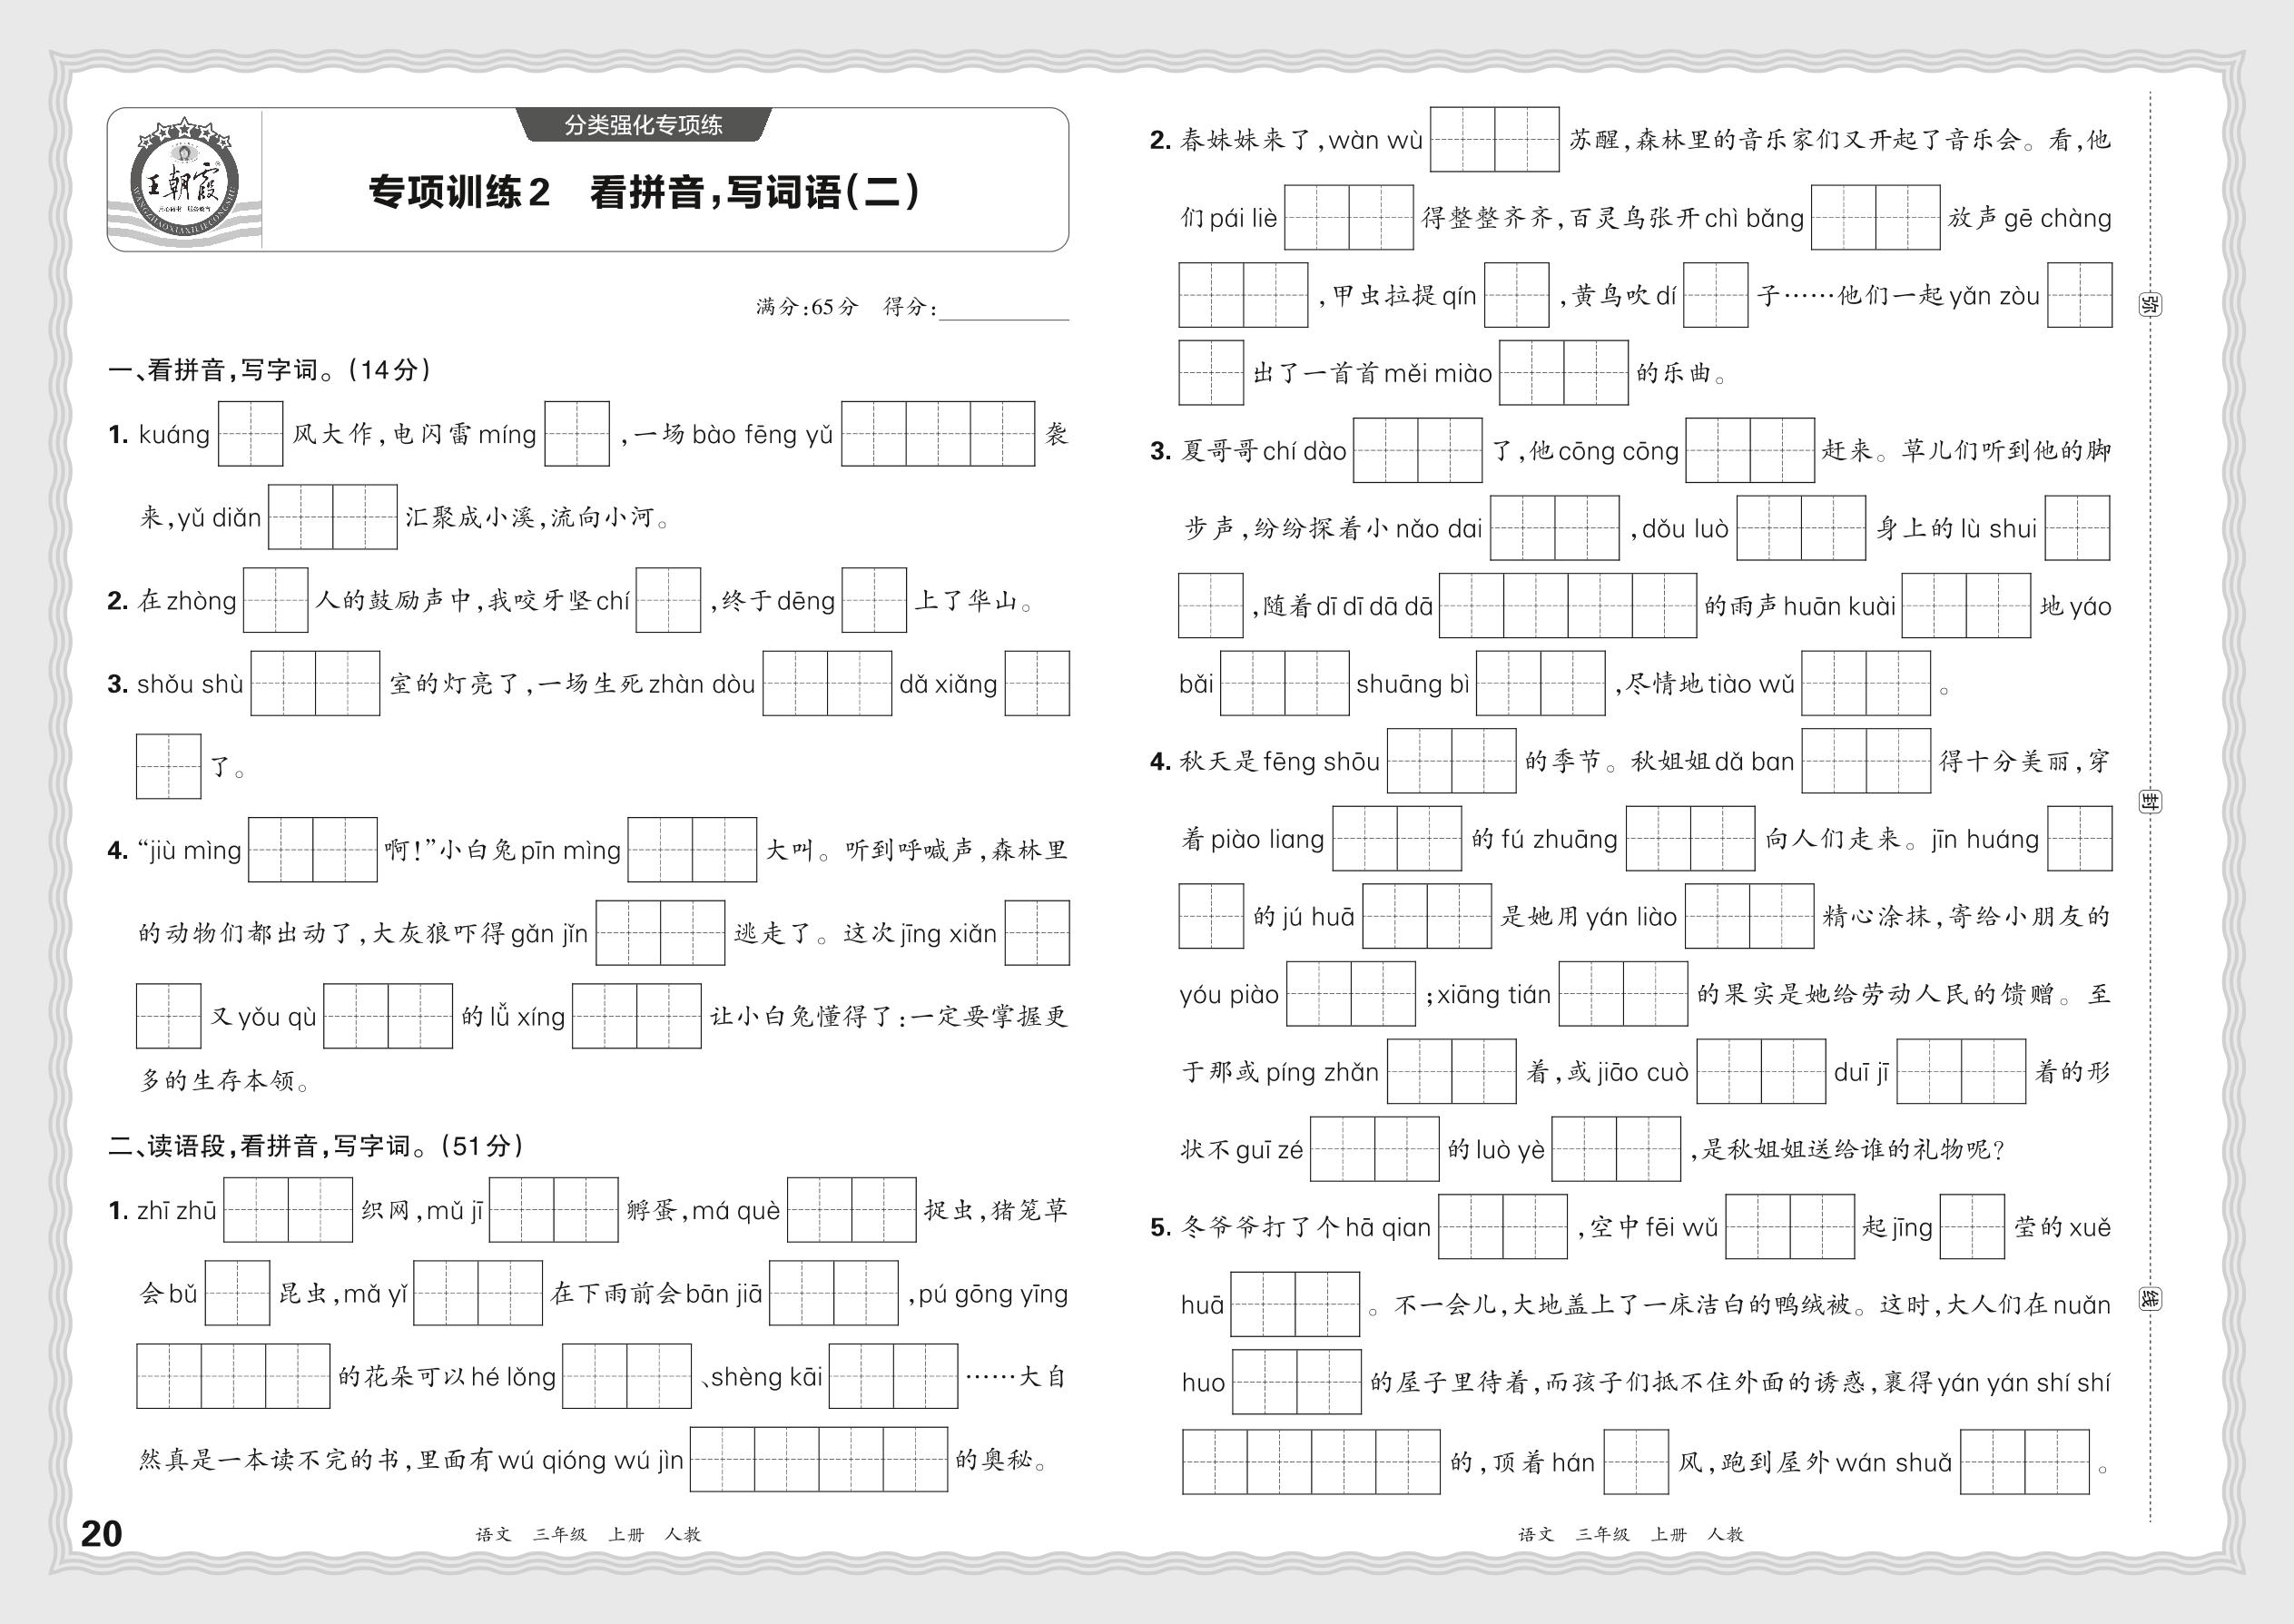 分类强化专项练
王朝霞
专项训练2 看拼音,写词语(二)
满分:65分 得分:
一、看拼音,写字词。(14分)
1. kuáng 风大作,电闪雷 míng ,一场 bào fēng yǔ 袭
来,yǔ diǎn 汇聚成小溪,流向小河。
2. 在 zhòng 人的鼓励声中,我咬牙坚 chí ,终于 dēng 上了华山。
3. shǒu shù 室的灯亮了,一场生死 zhàn dòu dǎ xiǎng
了。
4. “jiù mìng 啊!”小白兔 pīn mìng 大叫。听到呼喊声,森林里
的动物们都出动了,大灰狼吓得 gǎn jǐn 逃走了。这次 jīng xiǎn
又 yǒu qù 的 lǚ xíng 让小白兔懂得了:一定要掌握更
多的生存本领。
二、读语段,看拼音,写字词。(51分)
1. zhī zhū 织网,mǔ jī 孵蛋,má què 捉虫,猪笼草
会 bǔ 昆虫,mǎ yǐ 在下雨前会 bān jiā ,pú gōng yīng
的花朵可以 hé lǒng 、shèng kāi ……大自
然真是一本读不完的书,里面有 wú qióng wú jìn 的奥秘。
20
语文 三年级 上册 人教
2. 春妹妹来了,wàn wù 苏醒,森林里的音乐家们又开起了音乐会。看,他
们 pái liè 得整整齐齐,百灵鸟张开 chì bǎng 放声 gē chàng
,甲虫拉提 qín ,黄鸟吹 dí 子……他们一起 yǎn zòu
出了一首首 měi miào 的乐曲。
3. 夏哥哥 chí dào 了,他 cōng cōng 赶来。草儿们听到他的脚
步声,纷纷探着小 nǎo dai ,dǒu luò 身上的 lù shui
,随着 dī dī dā dā 的雨声 huān kuài 地 yáo
bǎi shuāng bì ,尽情地 tiào wǔ 。
4. 秋天是 fēng shōu 的季节。秋姐姐 dǎ ban 得十分美丽,穿
着 piào liang 的 fú zhuāng 向人们走来。jīn huáng
的 jú huā 是她用 yán liào 精心涂抹,寄给小朋友的
yóu piào ;xiāng tián 的果实是她给劳动人民的馈赠。至
于那或 píng zhǎn 着,或 jiāo cuò duī jī 着的形
状不 guī zé 的 luò yè ,是秋姐姐送给谁的礼物呢?
5. 冬爷爷打了个 hā qian ,空中 fēi wǔ 起 jīng 莹的 xuě
huā 。不一会儿,大地盖上了一床洁白的鸭绒被。这时,大人们在 nuǎn
huo 的屋子里待着,而孩子们抵不住外面的诱惑,裹得 yán yán shí shí
的,顶着 hán 风,跑到屋外 wán shuǎ 。
语文 三年级 上册 人教
弥
封
线